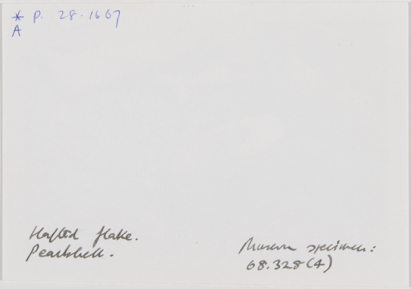 * P. 28.1607
A
Hafted flake.
Pearlshell.
Museum specimen:
68.328(4)